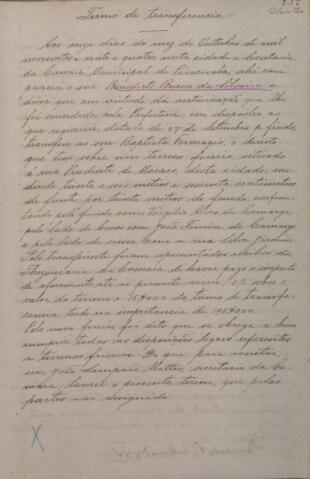 Termo de transferencia
Aos onze dias do mez de Outubro de mil
novecentos e quatro nesta cidade e Secretaria
da Camara Municipal de Piracicaba, ahi com
pareceu o snr. Benedicto Bueno da Silveira e
disse que em virtude da autorisação que lhe
foi concedida pela Prefeitura, em despacho ao
que requereu, datado de 27 de Setembro p. findo,
transfere ao snr. Baptista Vermagio, o direito
que tem sobre um terreno foreiro, situado
á rua Prudente de Moraes, desta cidade, me
dindo trinta e seis metros e sessenta centimetros
de frente por trinta metros de fundo, confron
tando pelo fundo com Virgilio Alves de Camargo,
pelo lado de baixo com João Ferreira de Camargo
e pelo lado de cima com a rua Silva Jardim
Pelo transferente foram apresentados recibos da
Thezouraria da Camara de haver pago o imposto
de aforamento até ao presente anno, 2% sobre o
valor do terreno e 15$000 do termo de transfe
rencia tudo na importancia de 19$8000.
Pelo novo foreiro foi dito que se obriga a bem
cumprir todas as disposições legaes referentes
a terrenos foreiros. Do que para constar,
eu, João Sampaio Mattos, secretario da Ca
mara, lavrei o presente termo, que pelas
partes vae assignado